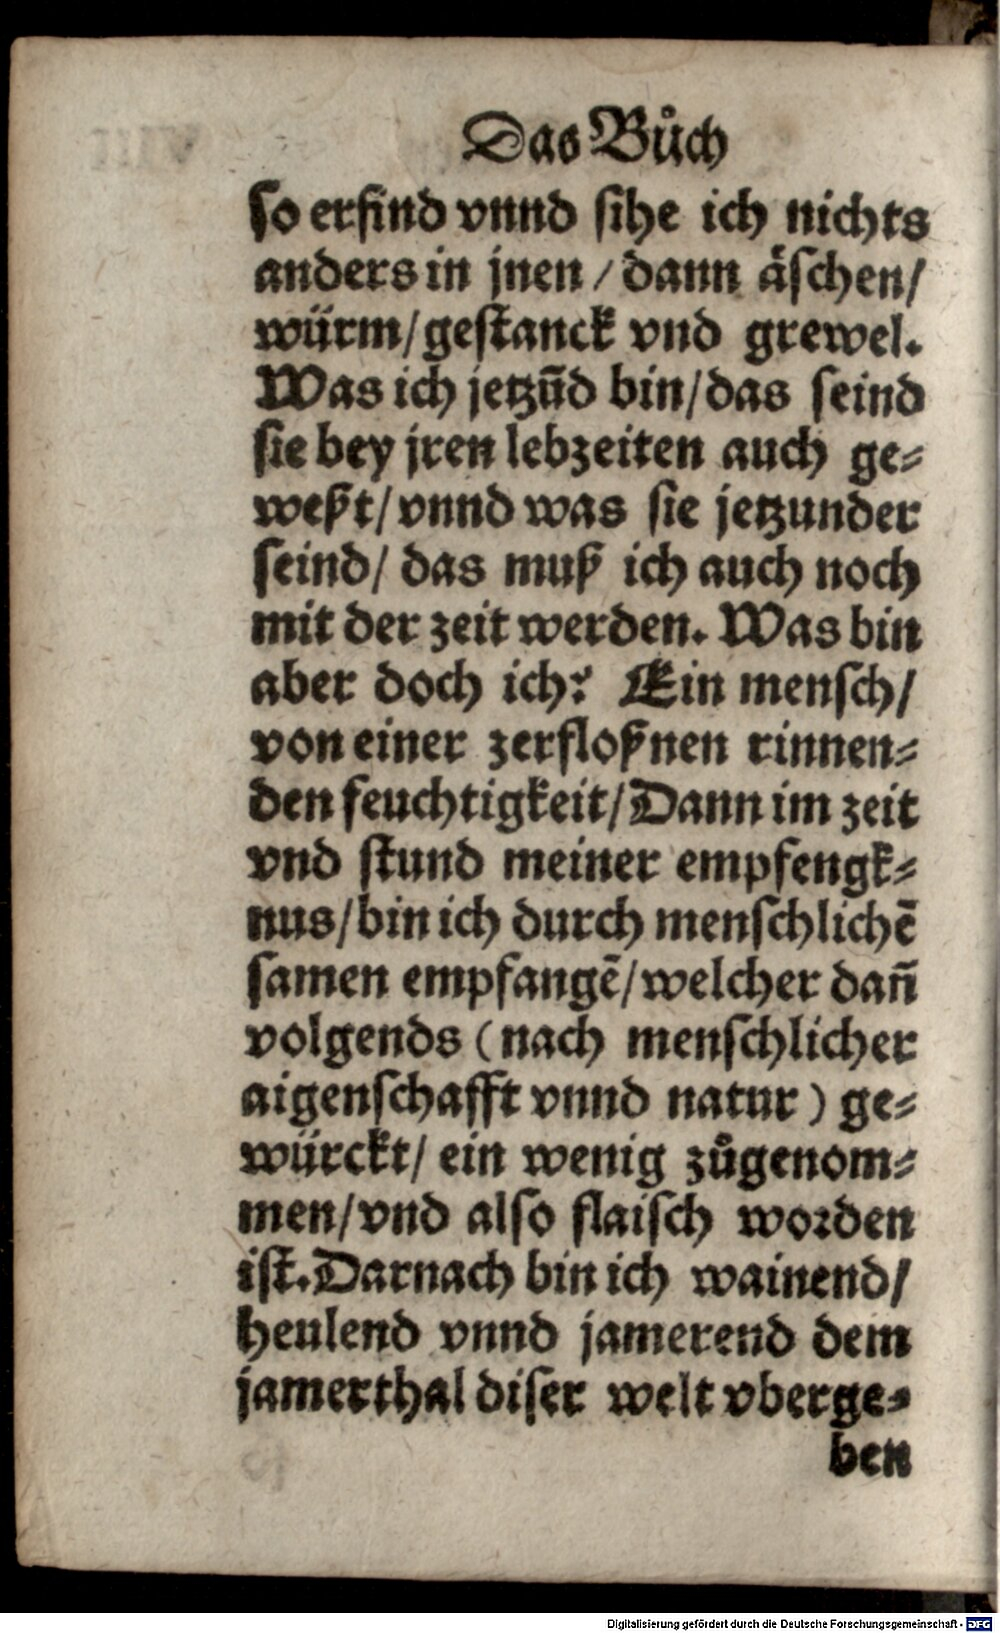 Das Bůch
so erfind vnnd sihe ich nichts
anders in jnen / dann äschen/
würm/gestanck vnd grewel.
Was ich jetzūd bin/das seind
sie bey jren lebzeiten auch ge⸗
weßt/vnnd was sie jetzunder
seind/ das muß ich auch noch
mit der zeit werden. Was bin
aber doch ich? Ein mensch/
von einer zerfloßnen rinnen⸗
den feuchtigkeit/Dann im zeit
vnd stund meiner empfengk⸗
nus/bin ich durch menschlichē
samen empfangē/welcher dañ
volgends (nach menschlicher
aigenschafft vnnd natur) ge⸗
würckt/ ein wenig zůgenom⸗
men/vnd also flaisch worden
ist. Darnach bin ich wainend/
heulend vnnd jamerend dem
jamerthal diser welt vberge⸗
ben
Digitalisierung gefördert durch die Deutsche Forschungsgemeinschaft - DFG